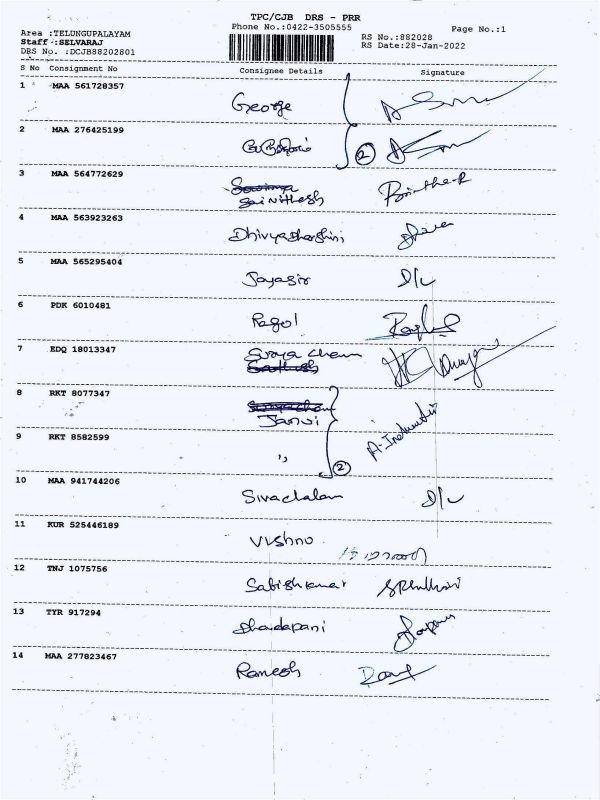 TPC/CJB DRS - PRR
Phone No.:0422-3505555
Area :TELUNGUPALAYAM
Staff :SELVARAJ
DRS No. :DCJB88202801
RS No.:882028
RS Date:28-Jan-2022
Page No.:1
S No Consignment No Consignee Details Signature
1 MAA 561728357 George
2 MAA 276425199 2
3 MAA 564772629
Sai Nithesh
4 MAA 563923263 Dhivyadharshini
5 MAA 565295404 Jayasir D/L
6 PDK 6010481 Ragol
7 EDQ 18013347
8 RKT 8077347
Janvi
9 RKT 8582599 " 2
10 MAA 941744206 Sivachalam D/L
11 KUR 525446189 Vishno
12 TNJ 1075756 Sabishkumar
13 TYR 917294 Dhandapani
14 MAA 277823467 Ramesh